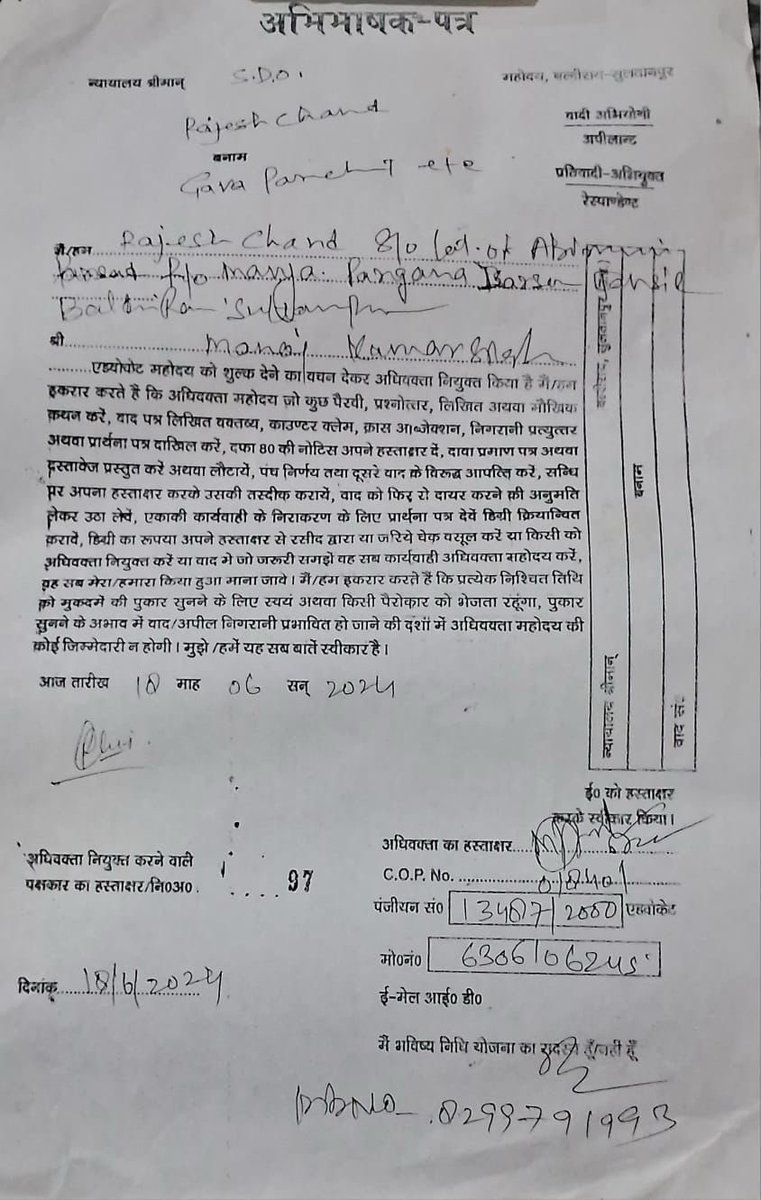 अभिभाषक-पत्र
न्यायालय श्रीमान् S.D.O. महोदय, बल्दीराय-सुलतानपुर
Rajesh Chand
वादी अभियोगी
अपीलान्ट
बनाम
Gava Panchi etc
प्रतिवादी-अभियुक्त
रेस्पाण्डेण्ट
मै/हम Rajesh Chand S/o Led. of
R/o Mayya. Pargana
Baldi Rai Sultanpur
श्री Manoj Kumar Singh
........एडवोवोट महोदय को शुल्क देने का वचन देकर अधिवक्ता नियुक्त किया है मै/हम
इकरार करते है कि अधिवक्ता महोदय जो कुछ पैरवी, प्रश्नोत्तर, लिखित अथवा मौखिक
कथन करें, वाद पत्र लिखित वक्तव्य, काउण्टर क्लेम, क्रास आब्जेक्शन, निगरानी प्रत्युत्तर
अथवा प्रार्थना पत्र दाखिल करें, दफा 80 की नोटिस अपने हस्ताक्षर दें, दावा प्रमाण पत्र अथवा
दस्तावेज प्रस्तुत करें अथवा लौटायें, पंच निर्णय तथा दूसरे वाद के विरूद्ध आपत्ति करें, सन्धि
पर अपना हस्ताक्षर करके उसकी तस्दीक करायें, वाद को फिर रो दायर करने की अनुमति
लेकर उठा लेवें, एकाकी कार्यवाही के निराकरण के लिए प्रार्थना पत्र देवें डिग्री क्रियान्वित
करावें, डिग्री का रूपया अपने हस्ताक्षर से रसीद द्वारा या जरिये चेक वसूल करें या किसी को
अधिवक्ता नियुक्त करें या वाद मे जो जरूरी समझे वह सब कार्यवाही अधिवक्ता महोदय करें,
वह सब मेरा/हमारा किया हुआ माना जावे। मैं/हम इकरार करते हैं कि प्रत्येक निश्चित तिथि
को मुकदमें की पुकार सुनने के लिए स्वयं अथवा किसी पैरोकार को भेजता रहूंगा, पुकार
सुनने के अभाव में वाद/अपील निगरानी प्रभावित हो जाने की दशा में अधिवक्ता महोदय की
कोई जिम्मेदारी न होगी। मुझे/हमें यह सब बातें स्वीकार है।
आज तारीख 18 माह 06 सन् 2024
न्यायालय श्रीमान् बल्दीराय, सुलतानपुर
बनाम
वाद सं०
ई० को हस्ताक्षर
करके स्वीकार किया।
अधिवक्ता का हस्ताक्षर
अधिवक्ता नियुक्त करने वाली
पक्षकार का हस्ताक्षर/नि०अ०
97
C.O.P. No.
पंजीयन सं० 13487/2000 एडवोकेट
मो०नं० 6306106245
दिनांक 18/6/2024
ई-मेल आई० डी०
मैं भविष्य निधि योजना का सदस्य हूँ/नहीं हूँ
8299791993